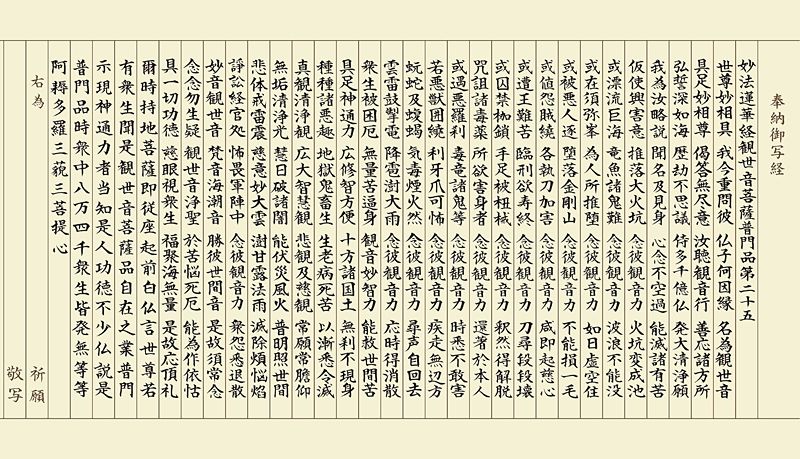 奉納御写経
妙法蓮華経観世音菩薩普門品第二十五
世尊妙相具 我今重問彼 仏子何因縁 名為観世音
具足妙相尊 偈答無尽意 汝聴観音行 善応諸方所
弘誓深如海 歴劫不思議 侍多千億仏 発大清浄願
我為汝略説 聞名及見身 心念不空過 能滅諸有苦
仮使興害意 推落大火坑 念彼観音力 火坑変成池
或漂流巨海 竜魚諸鬼難 念彼観音力 波浪不能没
或在須弥峯 為人所推堕 念彼観音力 如日虚空住
或被悪人逐 堕落金剛山 念彼観音力 不能損一毛
或値怨賊繞 各執刀加害 念彼観音力 咸即起慈心
或遭王難苦 臨刑欲寿終 念彼観音力 刀尋段段壊
或囚禁枷鎖 手足被杻械 念彼観音力 釈然得解脱
呪詛諸毒薬 所欲害身者 念彼観音力 還著於本人
或遇悪羅刹 毒竜諸鬼等 念彼観音力 時悉不敢害
若悪獣囲繞 利牙爪可怖 念彼観音力 疾走無辺方
蚖蛇及蝮蝎 気毒煙火然 念彼観音力 尋声自回去
雲雷鼓掣電 降雹澍大雨 念彼観音力 応時得消散
衆生被困厄 無量苦逼身 観音妙智力 能救世間苦
具足神通力 広修智方便 十方諸国土 無刹不現身
種種諸悪趣 地獄鬼畜生 生老病死苦 以漸悉令滅
真観清浄観 広大智慧観 悲観及慈観 常願常瞻仰
無垢清浄光 慧日破諸闇 能伏災風火 普明照世間
悲体戒雷震 慈意妙大雲 澍甘露法雨 滅除煩悩焰
諍訟経官処 怖畏軍陣中 念彼観音力 衆怨悉退散
妙音観世音 梵音海潮音 勝彼世間音 是故須常念
念念勿生疑 観世音浄聖 於苦悩死厄 能為作依怙
具一切功徳 慈眼視衆生 福聚海無量 是故応頂礼
爾時持地菩薩即従座起前白仏言世尊若
有衆生聞是観世音菩薩品自在之業普門
示現神通力者当知是人功徳不少仏説是
普門品時衆中八万四千衆生皆発無等等
阿耨多羅三藐三菩提心
右為 祈願
敬写